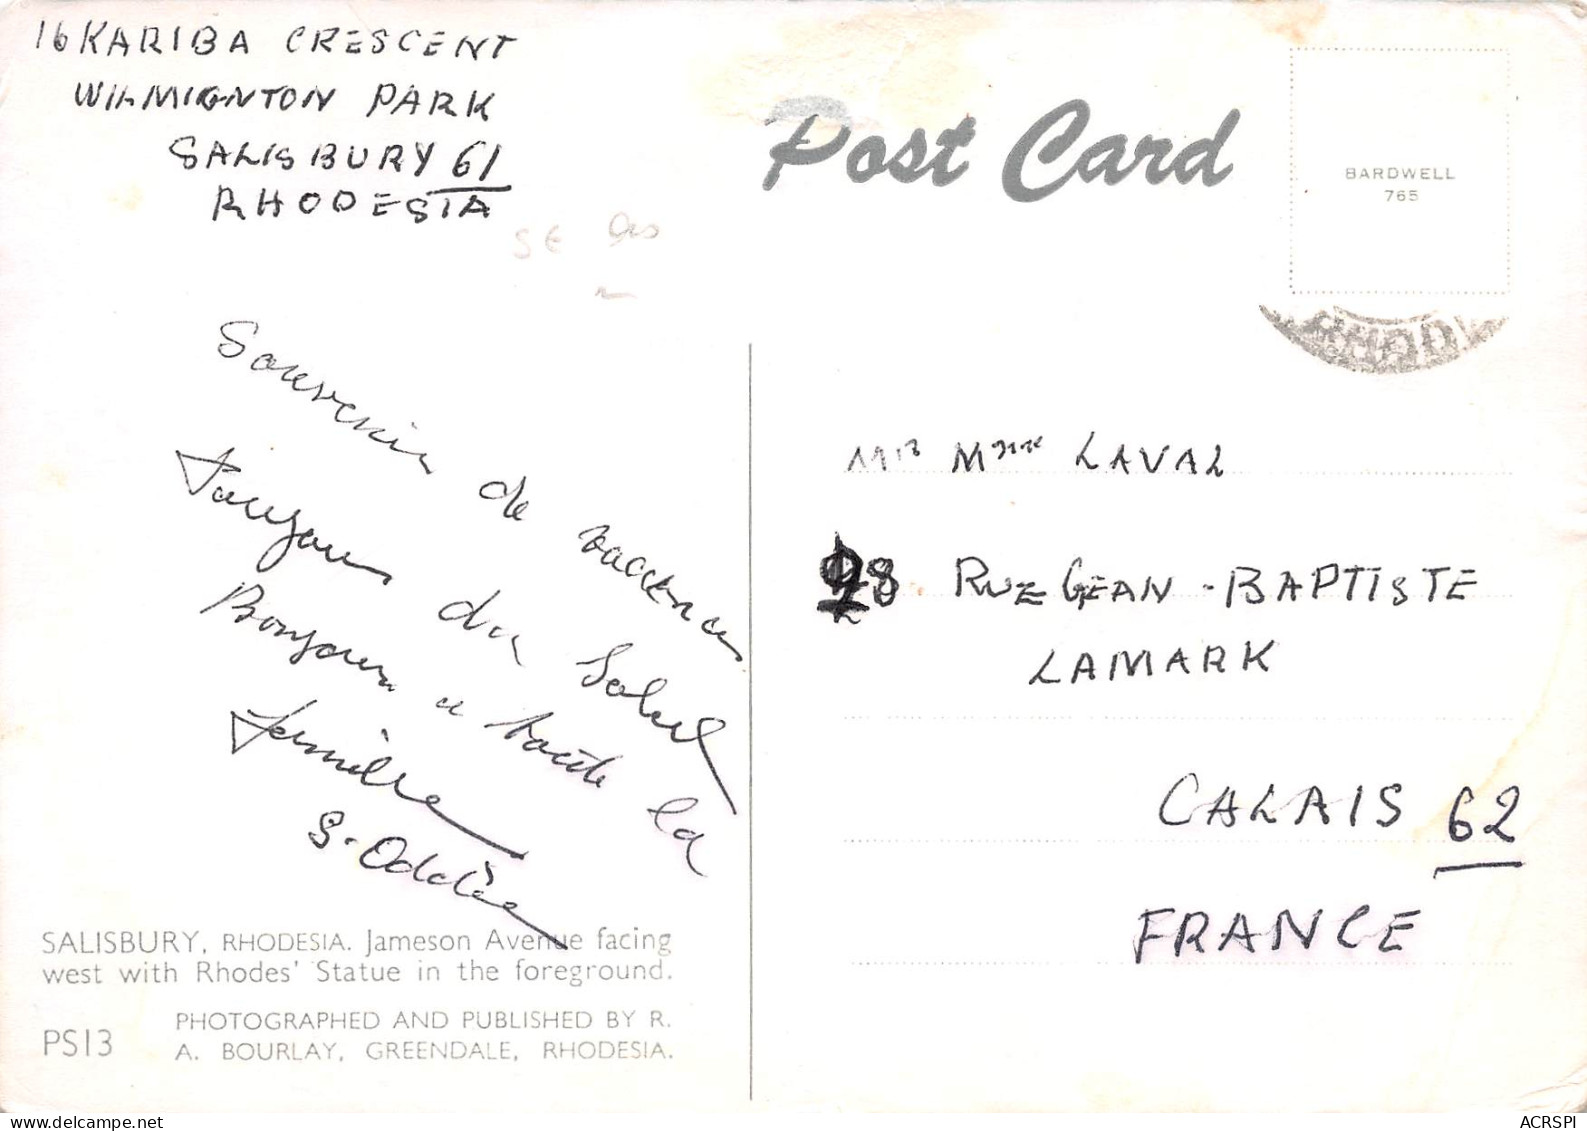 16 KARIBA CRESCENT
WILMIGNTON PARK
SALISBURY 61
RHODESIA
Post Card
BARDWELL
765
RHOD
Souvenir de vacances
Toujours du Soleil
Bonjour a toute la
famille
S. Odolèe
Mr Mme LAVAL
28 RUE GEAN-BAPTISTE
LAMARK
CALAIS 62
FRANCE
SALISBURY, RHODESIA. Jameson Avenue facing
west with Rhodes' Statue in the foreground.
PS13
PHOTOGRAPHED AND PUBLISHED BY R.
A. BOURLAY, GREENDALE, RHODESIA.
ACRSPI